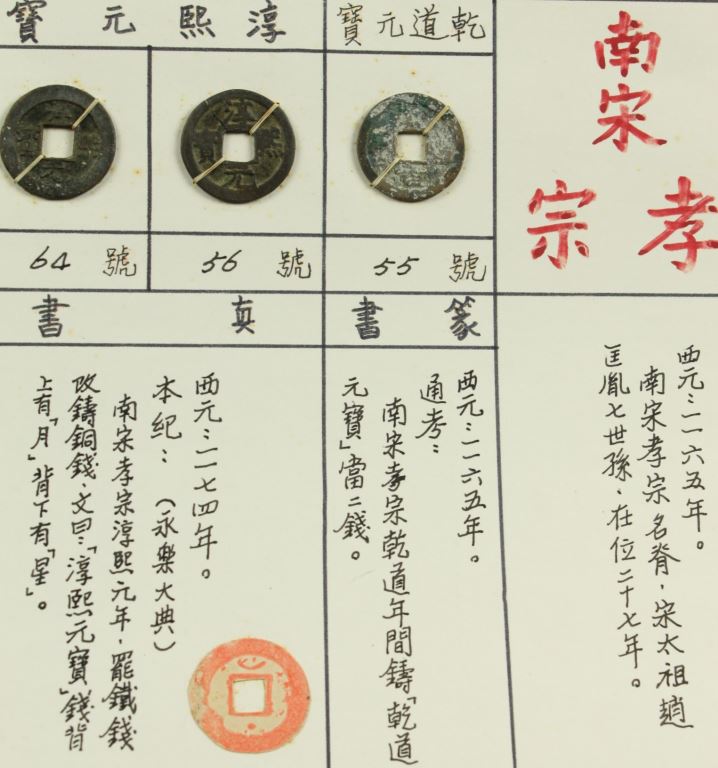 南宋
孝宗
西元:一一六五年。
南宋孝宗名脊,宋太祖趙
匡胤七世孫,在位二十七年。
乾道元寶
55 號
篆書
西元:一一六五年。
通考:
南宋孝宗乾道年間鑄「乾道
元寶」當二錢。
淳熙元寶
淳熙元寶
56 號
64 號
真書
西元:一一七四年。
本紀:(永樂大典)
南宋孝宗淳熙元年,罷鐵錢
改鑄銅錢,文曰:「淳熙元寶」錢背
上有「月」背下有「星」。